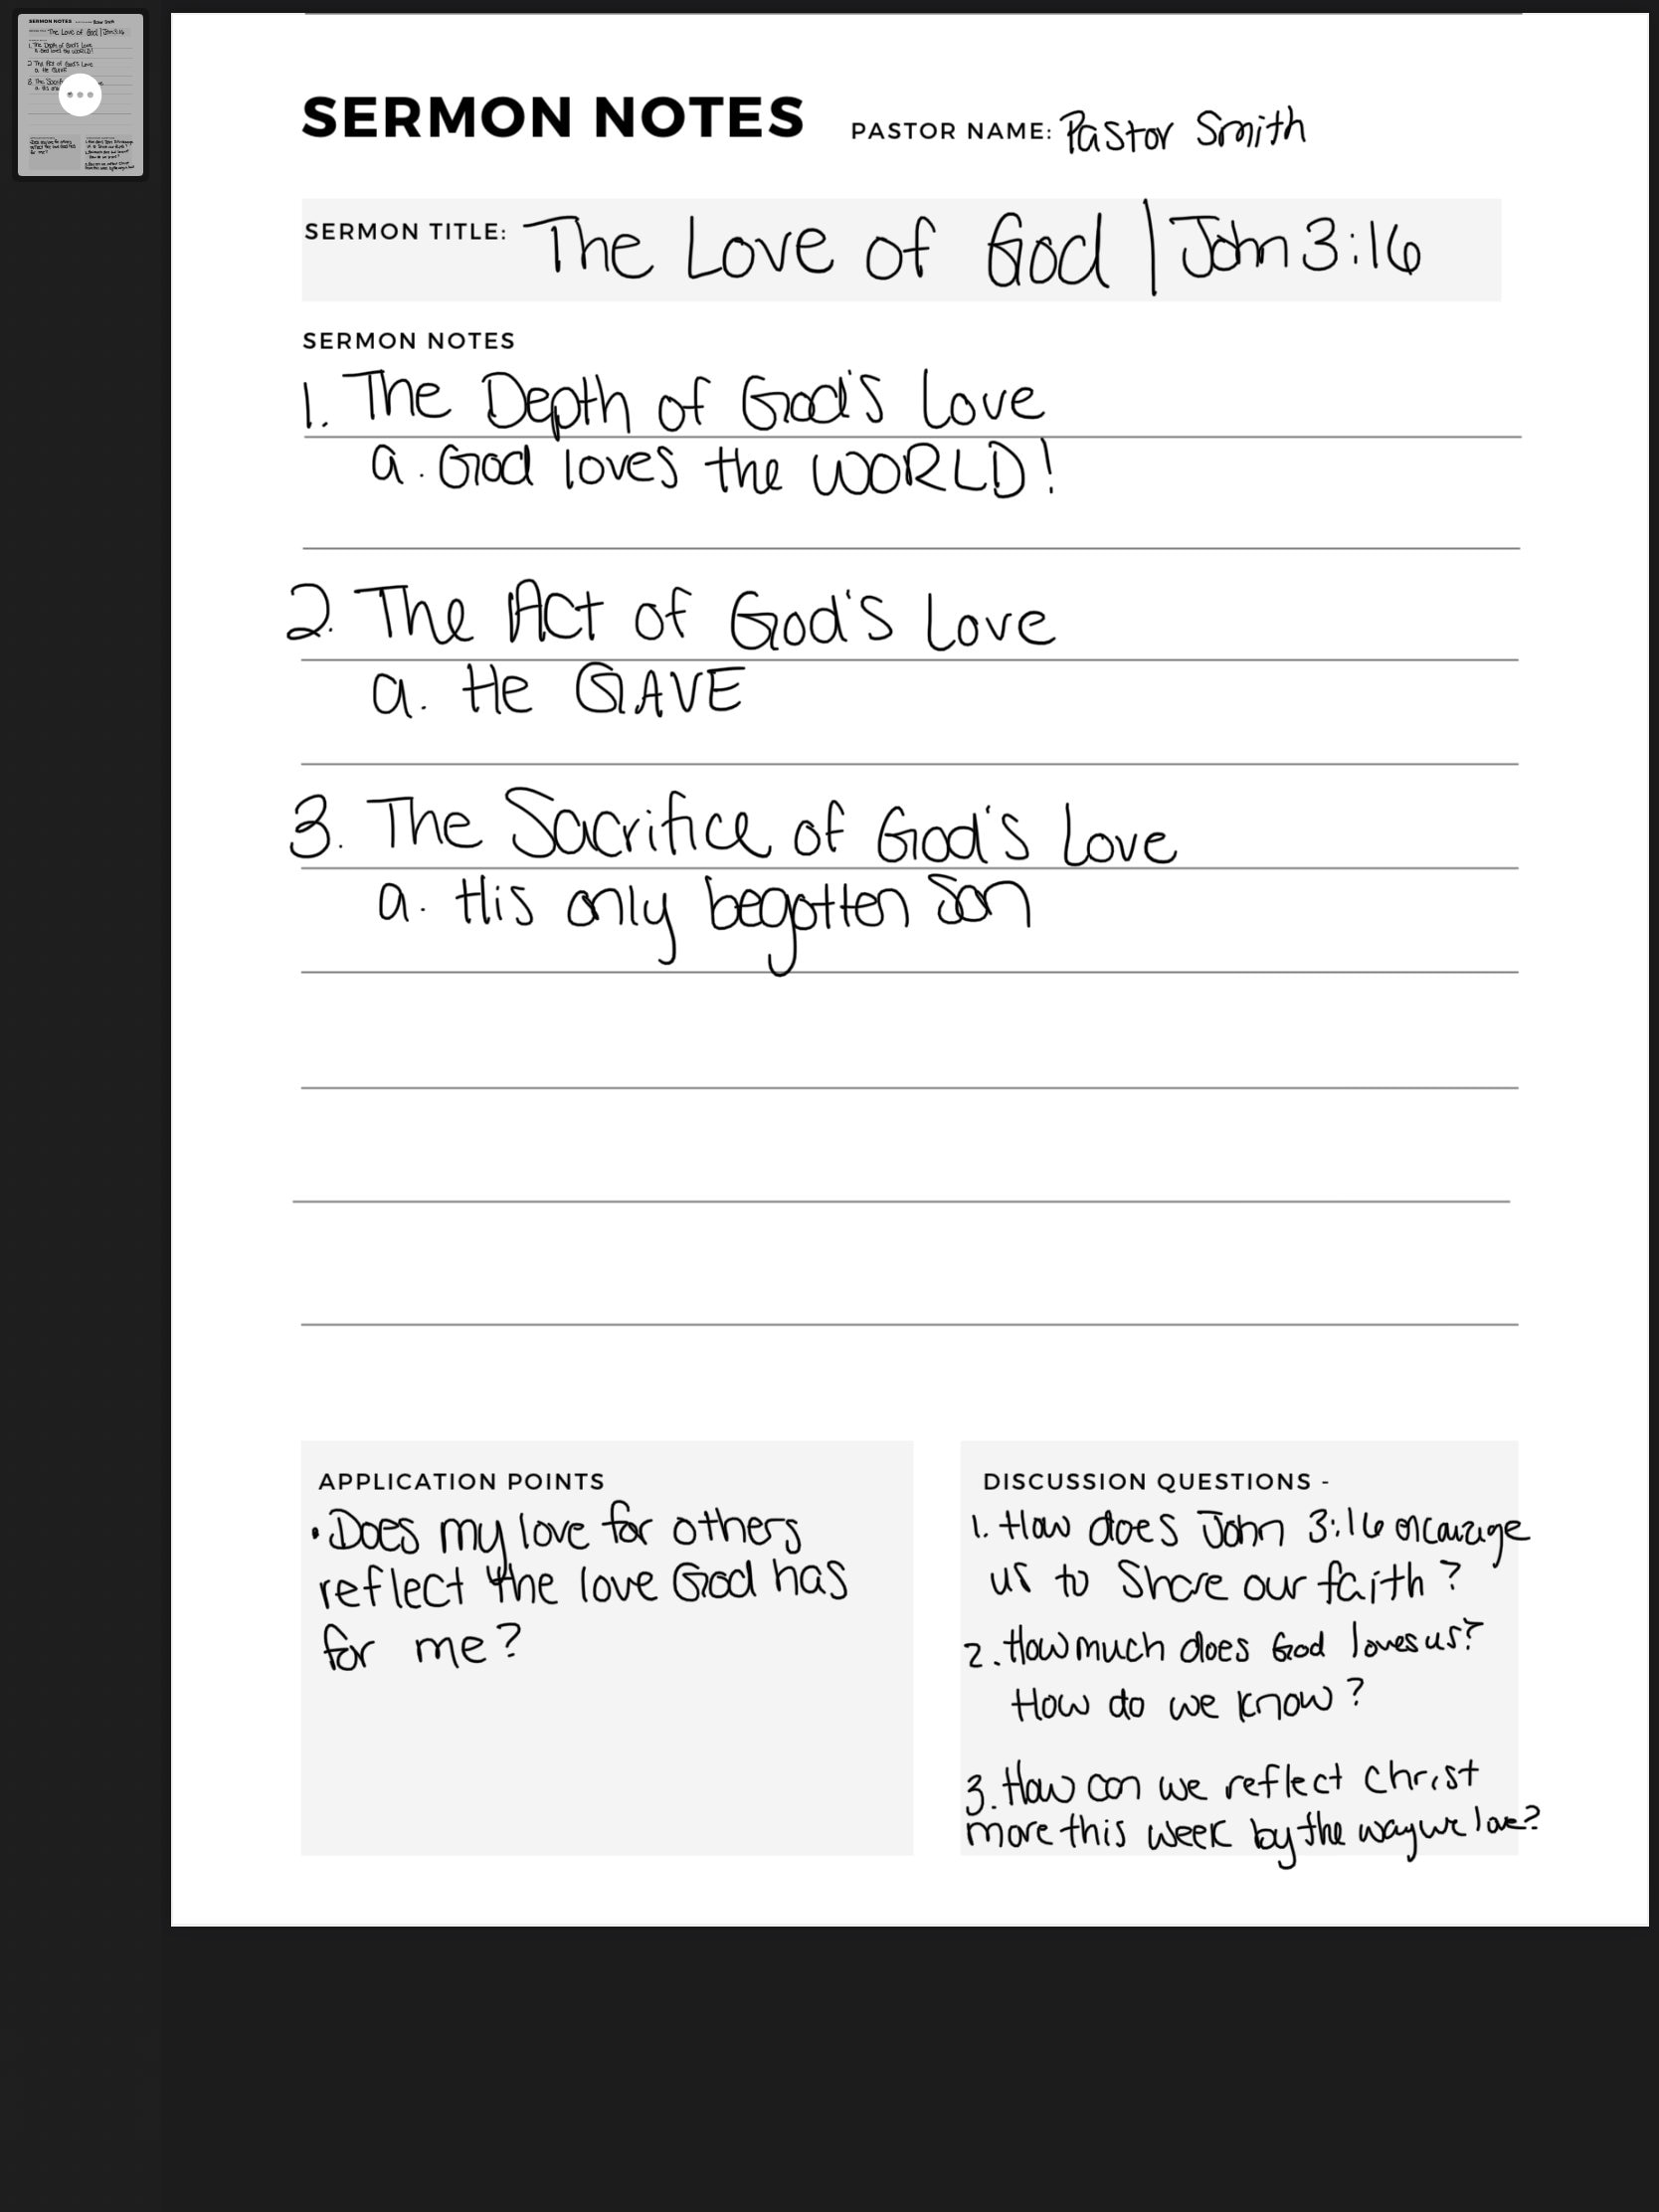 SERMON NOTES PASTOR NAME: Pastor Smith
SERMON TITLE: The Love of God | John 3:16
SERMON NOTES
1. The Depth of God's Love
a. God loves the WORLD!
2. The Act of God's Love
a. He GAVE
3. The Sacrifice of God's Love
a. His only begotten Son
APPLICATION POINTS
• Does my love for others
reflect the love God has
for me?
DISCUSSION QUESTIONS -
1. How does John 3:16 encourage
us to Share our faith?
2. How much does God loves us?
How do we know?
3. How can we reflect Christ
more this week by the way we love?